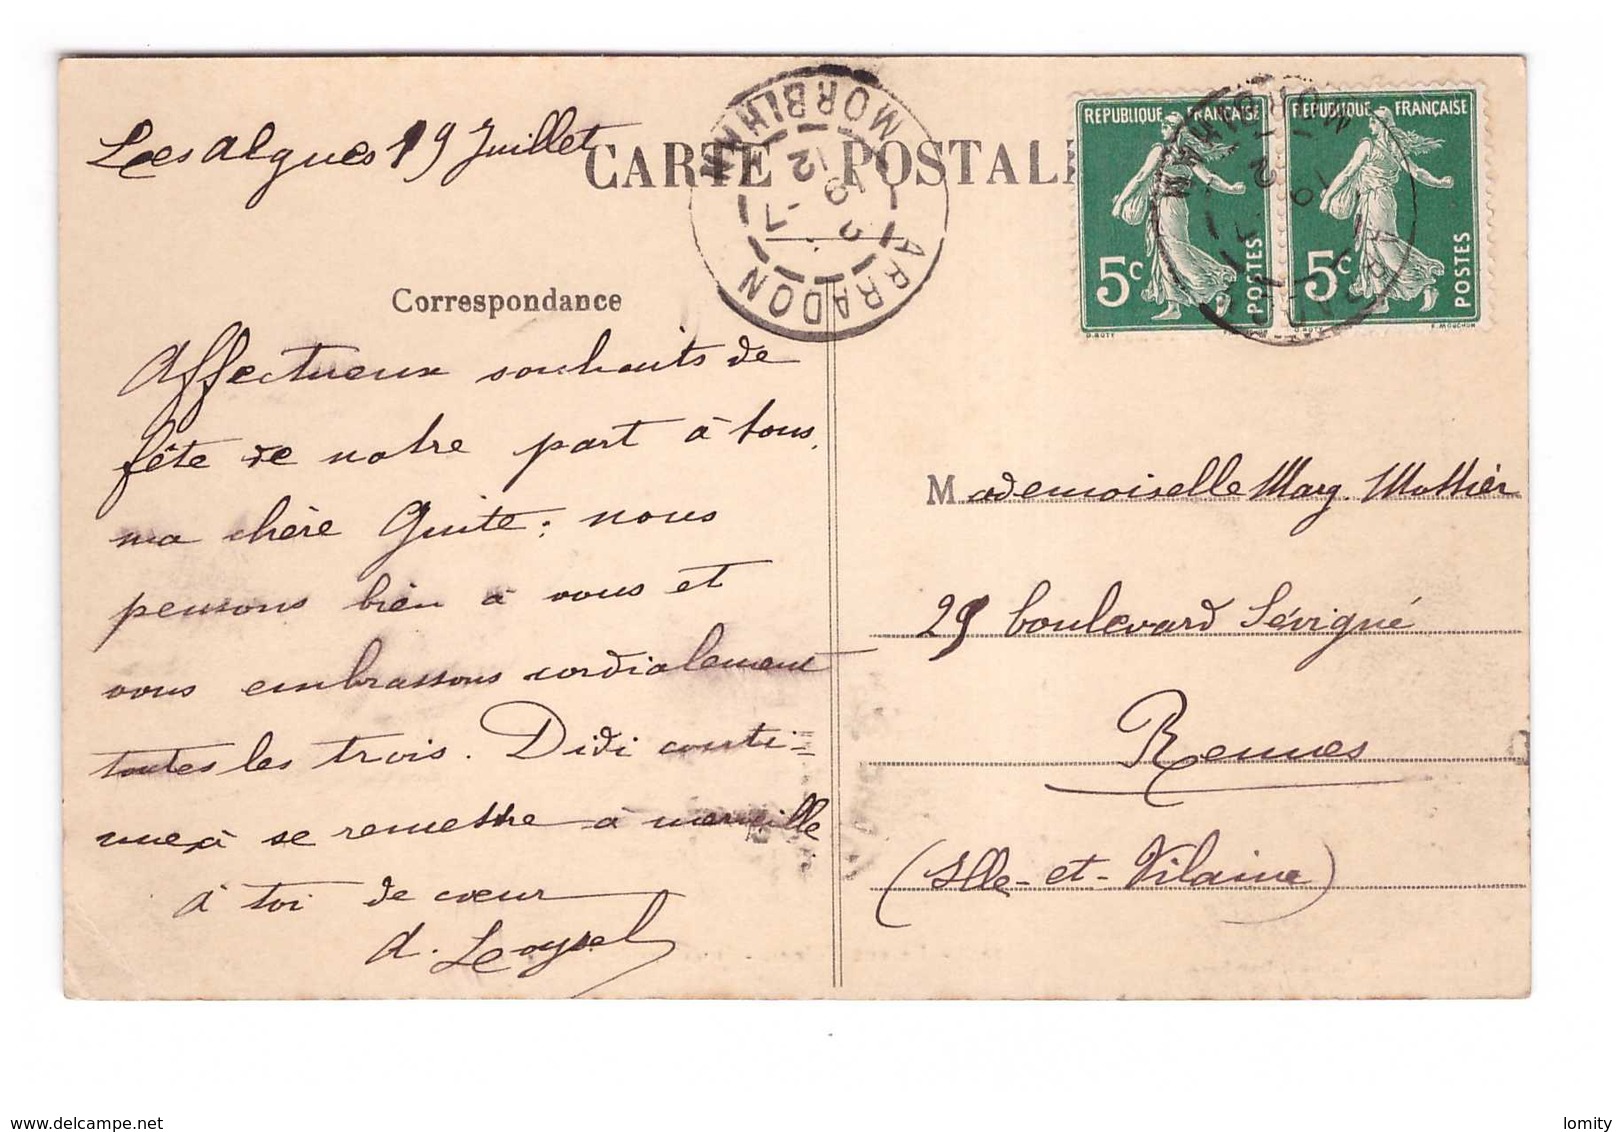 Les Algues 19 Juillet
CARTE POSTALE
Correspondance
Affectueux souhaits de
fête de notre part à tous,
ma chère Guite ; nous
pensons bien à vous et
vous embrassons cordialement
toutes les trois. Didi conti-
nue à se remettre à merveille
à toi de cœur
A. Loysel
ARRADON
MORBIHAN
19 -7
12
REPUBLIQUE FRANÇAISE
5c
POSTES
REPUBLIQUE FRANÇAISE
5c
POSTES
O. ROTY
E. MOUCHON
Mademoiselle Marg. Mottier
29 boulevard Sévigné
Rennes
(Ille-et-Vilaine)
www.delcampe.net
lomity